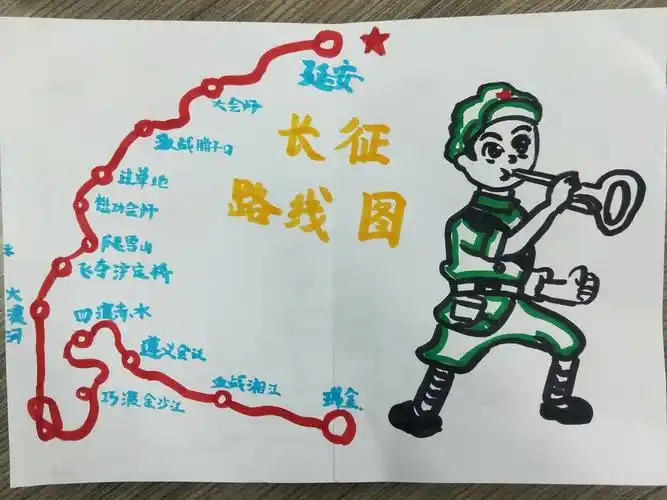 延安
大会师
激战腊子口
长征
过草地
路线图
懋功会师
爬雪山
飞夺泸定桥
大渡河
四渡赤水
遵义会议
血战湘江
巧渡金沙江
瑞金